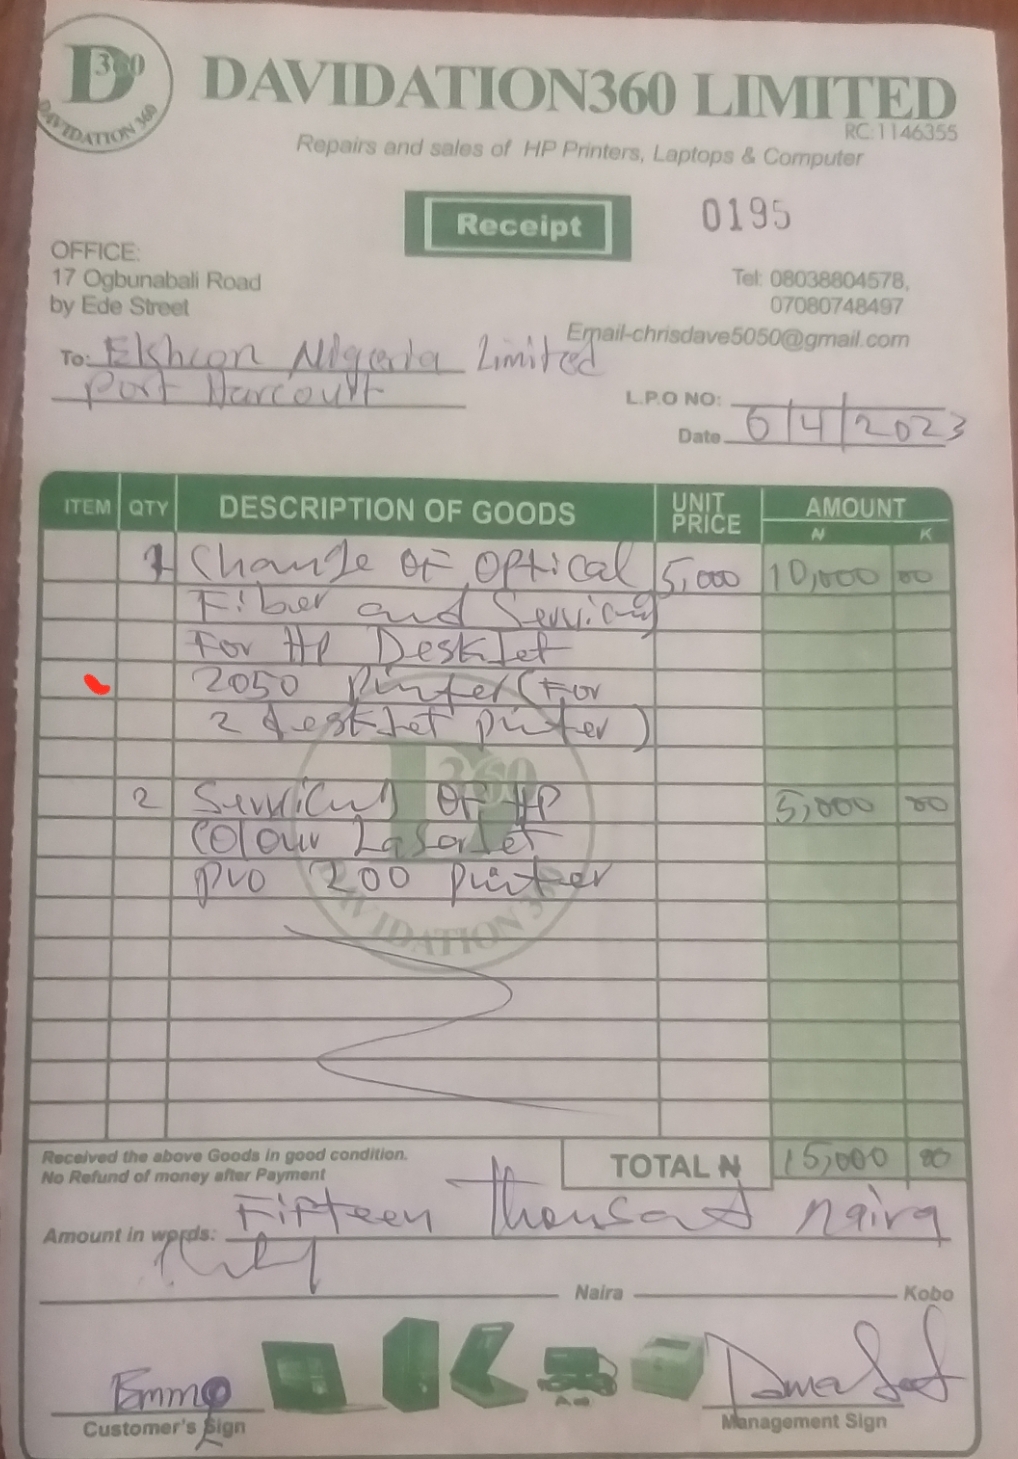 D360
DAVIDATION 360
DAVIDATION360 LIMITED
RC:1146355
Repairs and sales of HP Printers, Laptops & Computer
Receipt
0195
OFFICE:
17 Ogbunabali Road
by Ede Street
Tel: 08038804578,
07080748497
Email-chrisdave5050@gmail.com
To: Elshcon Nigeria Limited
Port Harcourt
L.P.O NO:
Date 6/4/2023
ITEM QTY DESCRIPTION OF GOODS UNIT PRICE AMOUNT
N K
1 Change OF Optical 5,000 10,000 00
Fiber and Servicing
For HP DeskJet
2050 Printer (For
2 deskJet printer)
2 Servicing OF HP 5,000 00
Colour LaserJet
pro 200 printer
D360
DAVIDATION 360
Received the above Goods in good condition.
No Refund of money after Payment
TOTAL N 15,000 00
Amount in words: Fifteen thousand naira
only
Naira Kobo
Emma
Customer's Sign
Management Sign